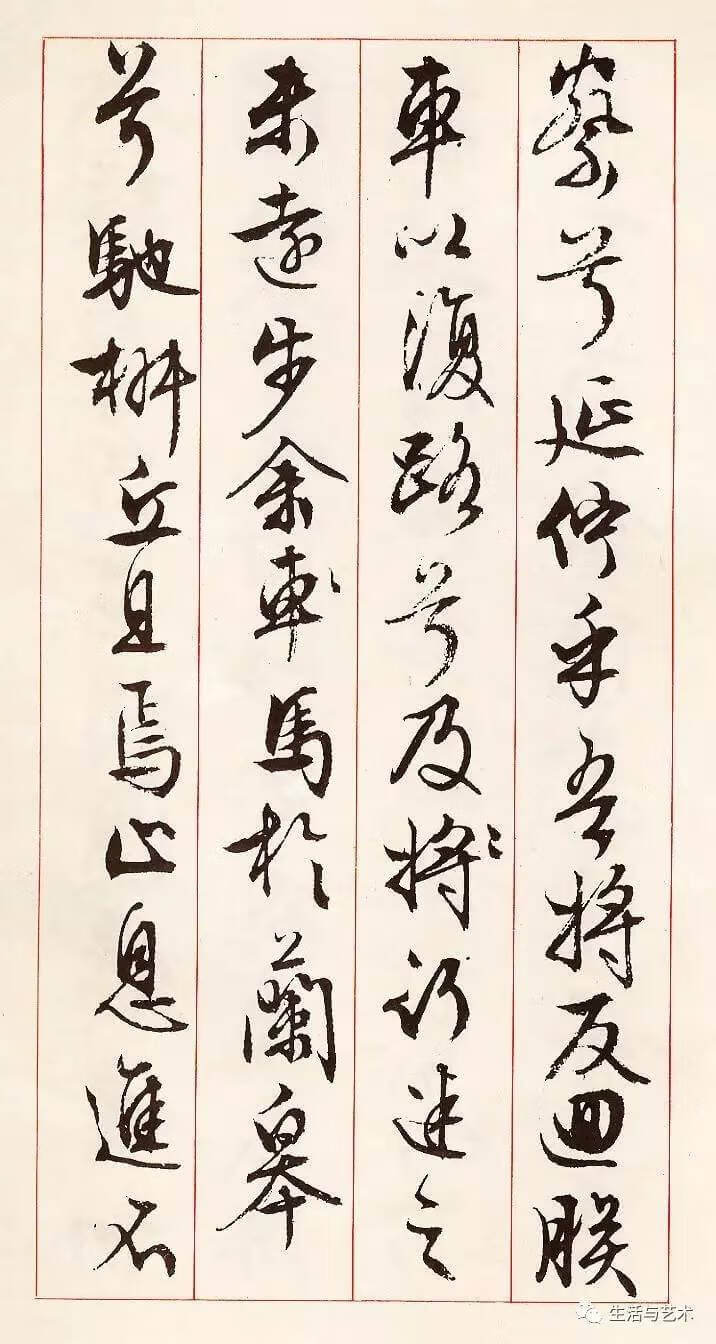 察兮延佇乎吾將反迴朕
車以復路兮及將行迷之
未遠步余車馬於蘭皋
兮馳椒丘且焉止息進不
生活与艺术